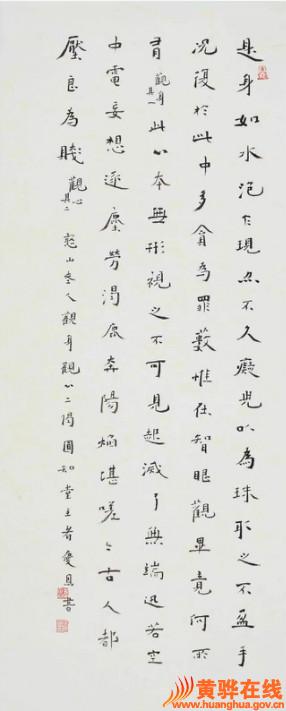 是身如水泡乍現亦不久癡兒以為珠取之不盈手
況復於此中多貪為罪藪惟在智眼觀畢竟何所
有觀身其一此心本無形視之不可見起滅了無端迅若空
中電妄想逐塵勞渴鹿奔陽焰堪嗟今古人都
壓良為賤觀心其二憨山老人觀身觀心二偈圓知堂主者愛恩書
黄骅在线
www.huanghua.gov.cn